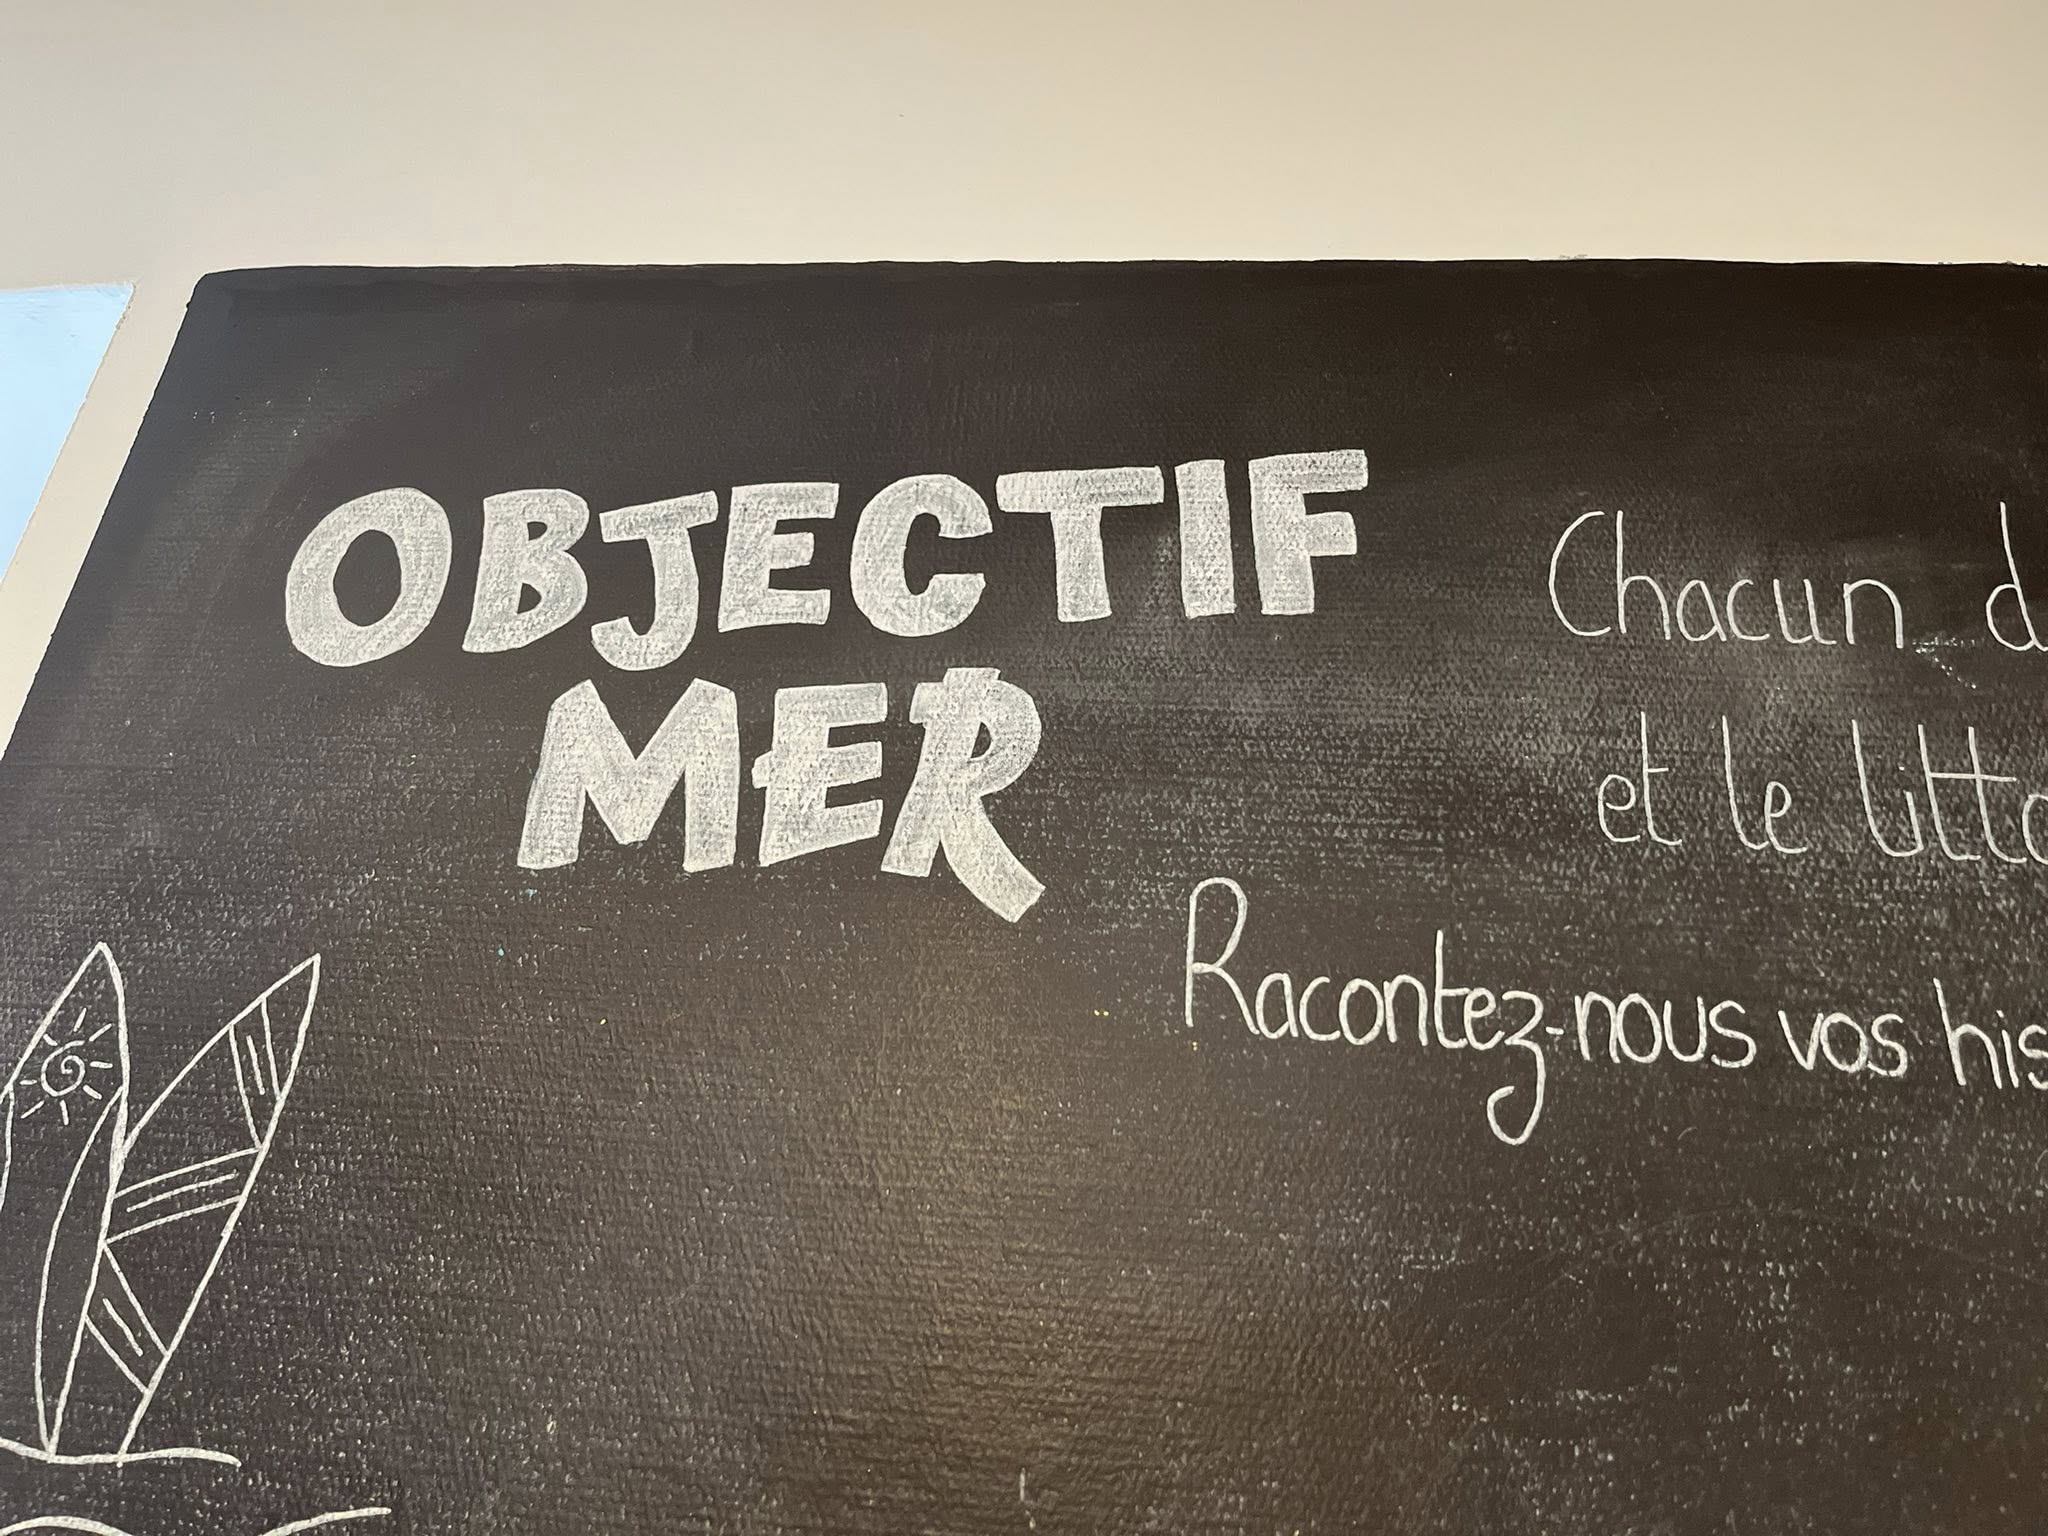 OBJECTIF
MER
Chacun d
et le litto
Racontez-nous vos his